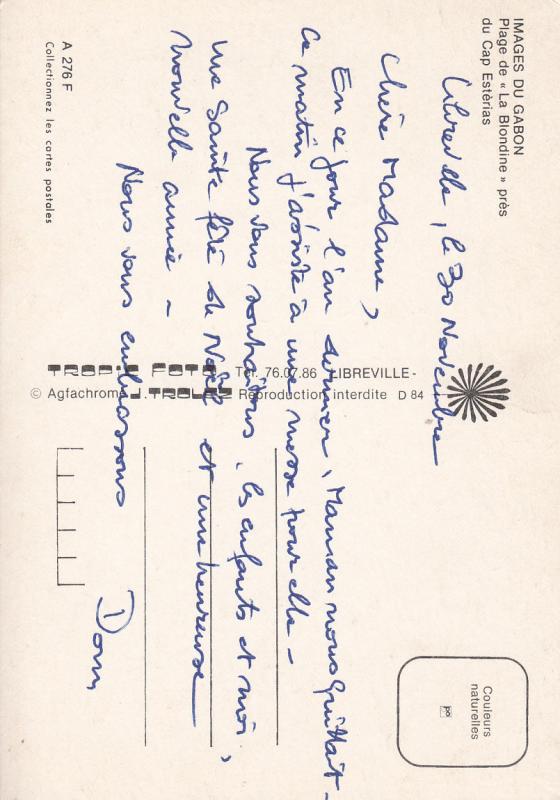 IMAGES DU GABON
Plage de « La Blondine » près
du Cap Estérias
Libreville, le 30 Novembre
Chère Madame,
En ce jour l'an dernier, Maman nous quittait -
Ce matin j'assiste à une messe pour elle -
Nous vous souhaitons, les enfants et moi,
une Sainte fête de Noël et une heureuse
nouvelle année -
Nous vous embrassons
Dom
A 276 F
Collectionnez les cartes postales
TROPIC FOTO Tél. 76.07.86 LIBREVILLE -
© Agfachrome J. TROLEZ Reproduction interdite D 84
Couleurs
naturelles